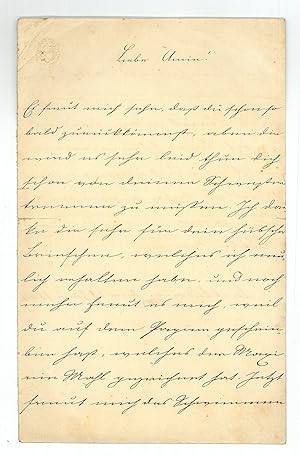 Liebe Annie!
Es freut mich sehr, daß du schon so
bald zurückkommst, aber da
wird es sehr leid thun dich
schon von deinen Schwestern
trennen zu müssen. Ich dan-
ke dir sehr für dein hübsches
Briefchen, welches ich neu-
lich erhalten habe, und noch
mehr freut es mich, weil
du auf dem Papier geschrie-
ben hast, welches der
ein Mahl gezeichnet hat. Jetzt
freut mich das Schwimmen